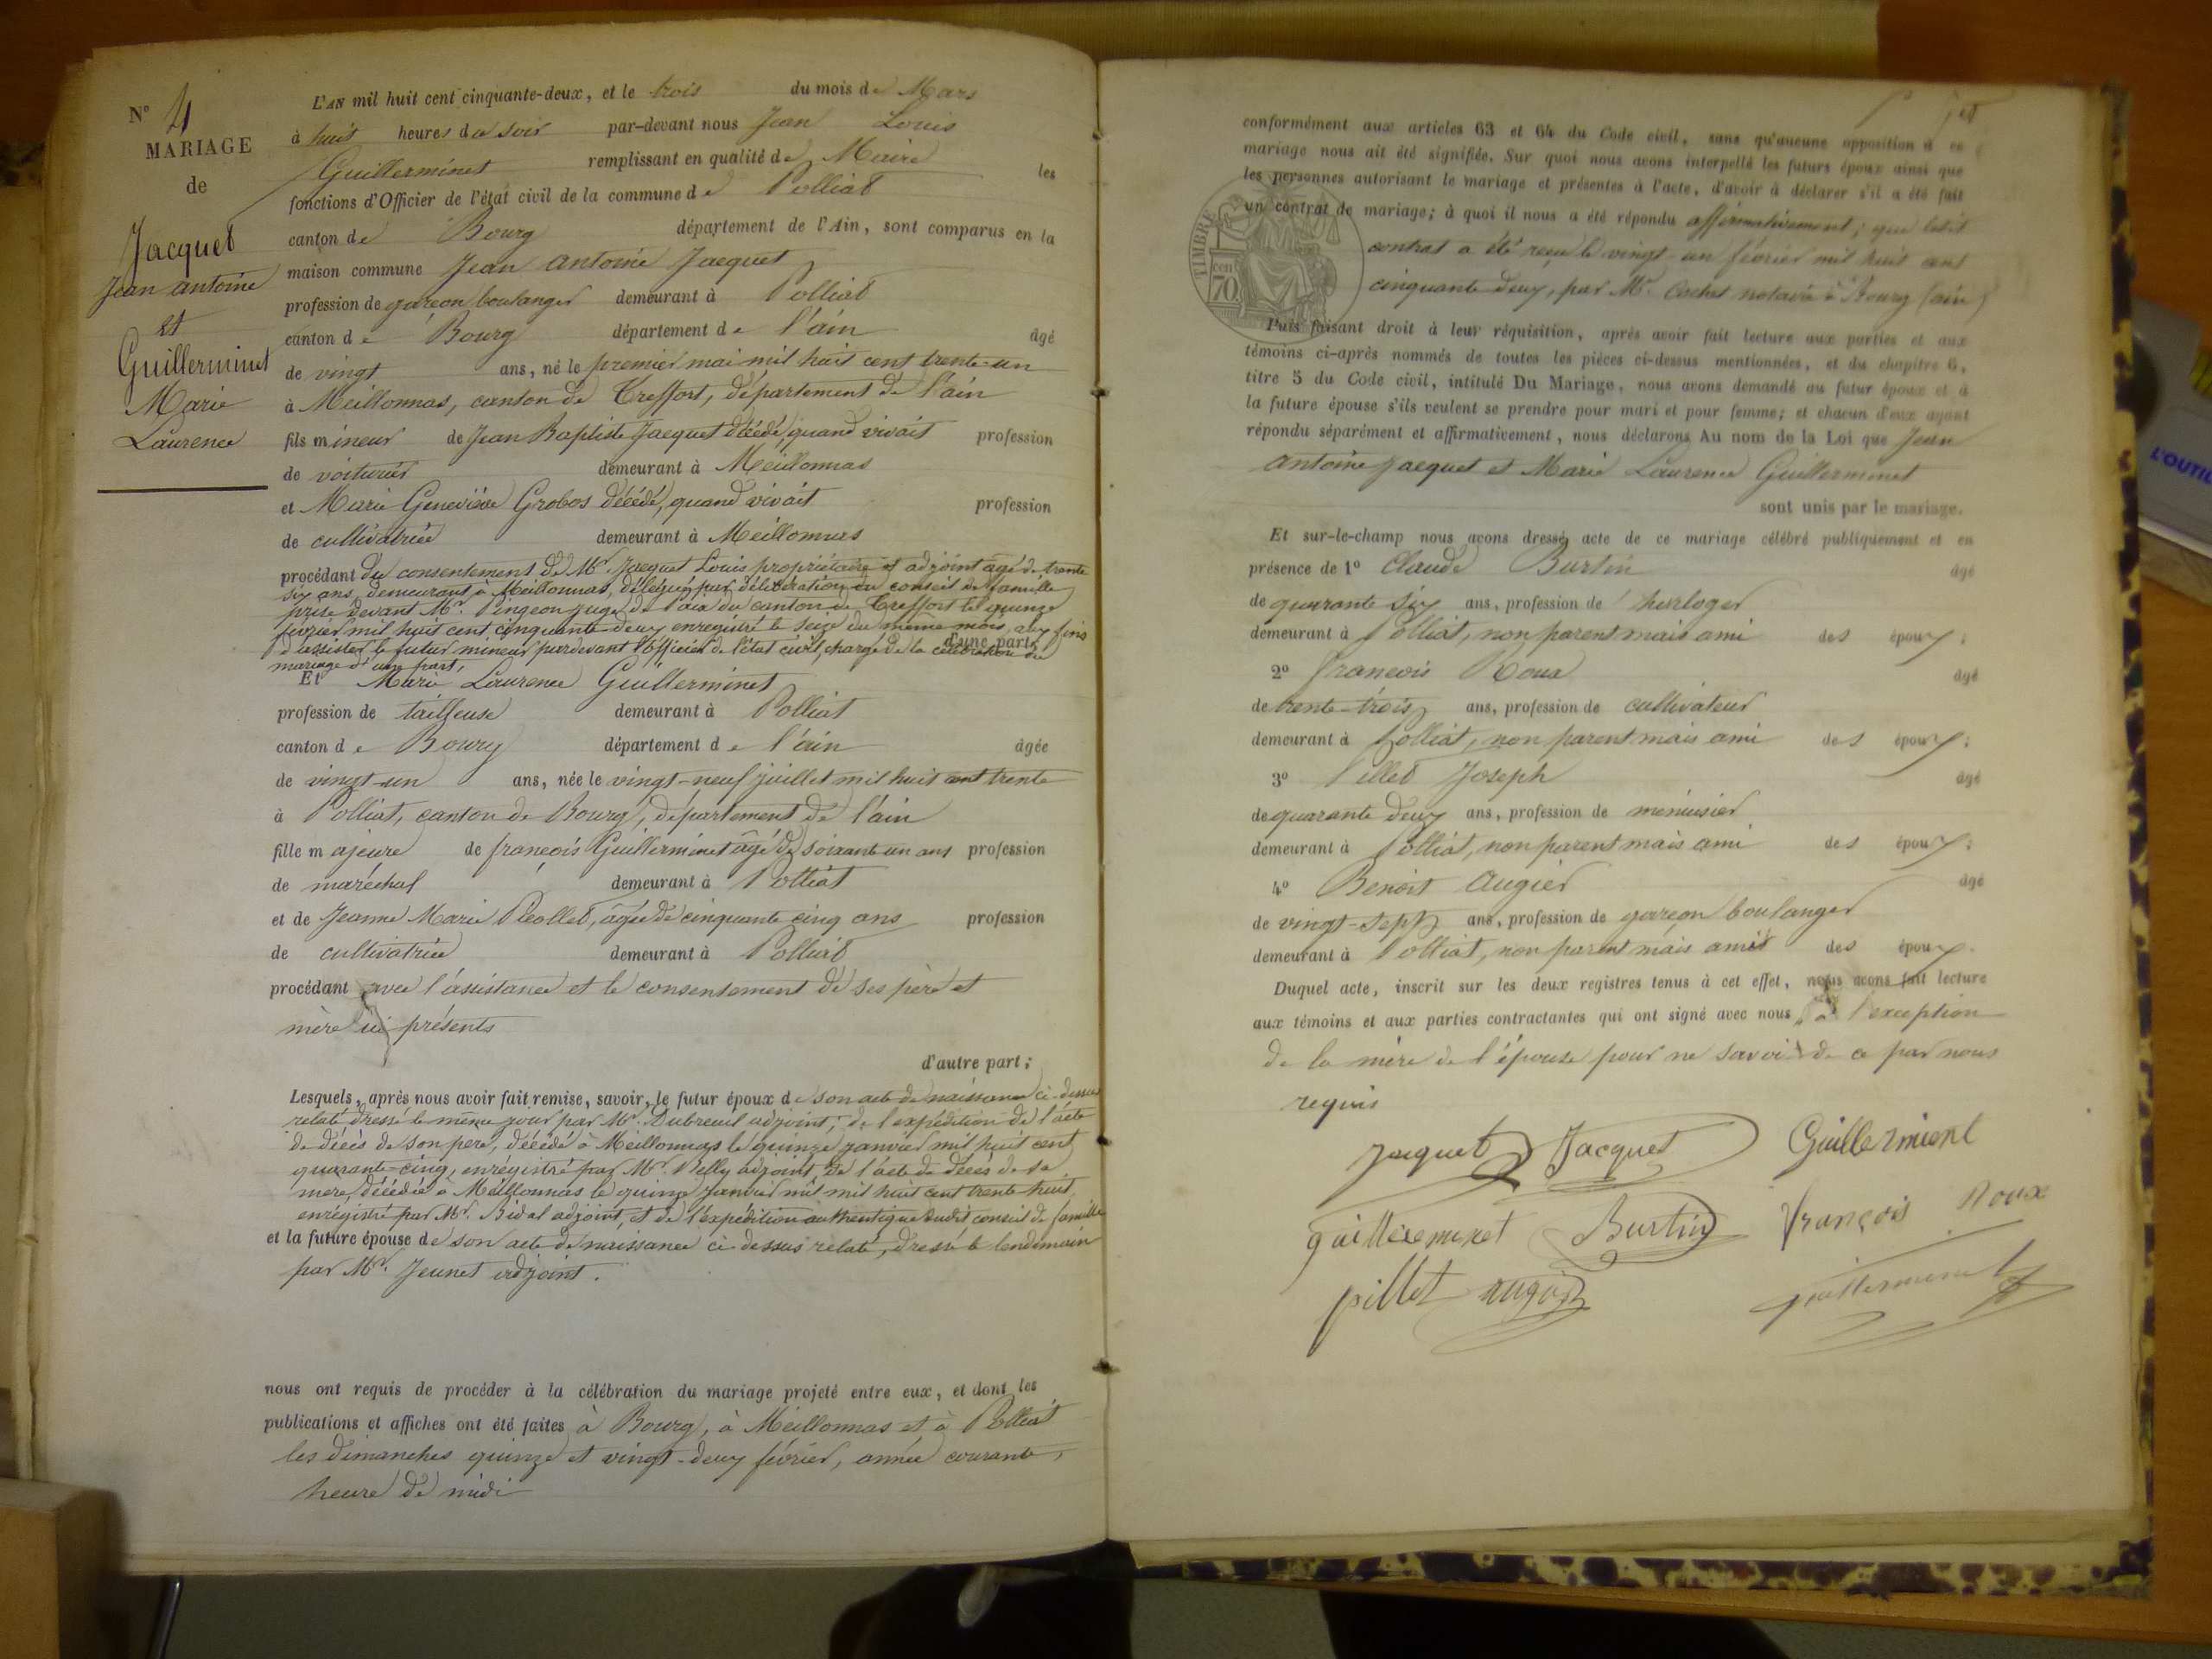 N° 4
MARIAGE
de
Jacquet
Jean antoine
et
Guillerminet
Marie
Laurence
L'AN mil huit cent cinquante-deux, et le trois du mois de Mars
à huit heures du soir par-devant nous Jean Louis
Guillerminet remplissant en qualité de Maire les
fonctions d'Officier de l'état civil de la commune de Polliat
canton de Bourg département de l'Ain, sont comparus en la
maison commune Jean antoine Jacquet
profession de garçon boulanger demeurant à Polliat
canton de Bourg département de l'ain âgé
de vingt ans, né le premier mai mil huit cent trente-un
à Meillonnas, canton de Treffort, département de l'ain
fils mineur de Jean Baptiste Jacquet décédé, quand vivait profession
de voiturier demeurant à Meillonnas
et Marie Geneviève Grobos décédé, quand vivait profession
de cultivatrice demeurant à Meillonnas
procédant du consentement de Mr Jacquet Louis propriétaire et adjoint âgé de trente
six ans, demeurant à Meillonnas, délégué par délibération du conseil de famille
prise devant Mr. Pingeon juge de Paix du canton de Treffort le quinze
février mil huit cent cinquante deux enregistré le seize du même mois, aux fins
d'assister le futur mineur pardevant l'officier de l'état civil, chargé de la célébration du
d'une part;
mariage d'une part,
Et Marie Laurence Guillerminet
profession de tailleuse demeurant à Polliat
canton de Bourg département de l'ain âgée
de vingt-un ans, née le vingt-neuf juillet mil huit cent trente
à Polliat, canton de Bourg, département de l'ain
fille majeure de françois Guillerminet âgé de soixante un ans profession
de maréchal demeurant à Polliat
et de Jeanne Marie Péollet, âgée de cinquante cinq ans profession
de cultivatrice demeurant à Polliat
procédant avec l'assistance et le consentement de ses père et
mère ici présents
d'autre part;
Lesquels, après nous avoir fait remise, savoir, le futur époux de son acte de naissance ci-dessus
relaté dressé le même jour par Mr. Dubreuil adjoint; de l'expédition de l'acte
de décès de son père, décédé à Meillonnas le quinze janvier mil huit cent
quarante-cinq, enrégistré par Mr. Velly adjoint de l'acte de décès de sa
mère, décédée à Meillonnas le quinze janvier mil mil huit cent trente huit,
enrégistré par Mr. Bidal adjoint, et de l'expédition authentique dudit conseil de famille
et la future épouse de son acte de naissance ci-dessus relaté, dressé le lendemain
par Mr. Jeunet adjoint.
nous ont requis de procéder à la célébration du mariage projeté entre eux, et dont les
publications et affiches ont été faites à Bourg, à Meillonnas et à Polliat
les dimanches quinze et vingt-deux février, année courante,
heure de midi
conformément aux articles 63 et 64 du Code civil, sans qu'aucune opposition à ce
mariage nous ait été signifiée. Sur quoi nous avons interpellé les futurs époux ainsi que
les personnes autorisant le mariage et présentes à l'acte, d'avoir à déclarer s'il a été fait
un contrat de mariage; à quoi il nous a été répondu affirmativement; que ledit
contrat a été reçu le vingt-un février mil huit cent
cinquante deux, par Mr. Cochet notaire à Bourg (ain)
TIMBRE
cent
70
Puis faisant droit à leur réquisition, après avoir fait lecture aux parties et aux
témoins ci-après nommés de toutes les pièces ci-dessus mentionnées, et du chapitre 6,
titre 5 du Code civil, intitulé Du Mariage, nous avons demandé au futur époux et à
la future épouse s'ils veulent se prendre pour mari et pour femme; et chacun d'eux ayant
répondu séparément et affirmativement, nous déclarons Au nom de la Loi que Jean
antoine Jacquet et Marie Laurence Guillerminet
sont unis par le mariage.
Et sur-le-champ nous avons dressé acte de ce mariage célébré publiquement et en
présence de 1° Claude Burtin âgé
de quarante six ans, profession de horloger
demeurant à Polliat, non parent mais ami des époux;
2° françois Roux âgé
de trente-trois ans, profession de cultivateur
demeurant à Polliat, non parent mais ami des époux;
3° Pillet Joseph âgé
de quarante deux ans, profession de menuisier
demeurant à Polliat, non parent mais ami des époux;
4° Benoit augier âgé
de vingt-sept ans, profession de garçon boulanger
demeurant à Polliat, non parent mais ami des époux.
Duquel acte, inscrit sur les deux registres tenus à cet effet, nous avons fait lecture
aux témoins et aux parties contractantes qui ont signé avec nous, à l'exception
de la mère de l'épouse pour ne savoir de ce par nous
requis
Jacquet Jacquet Guillerminet
guillerminet Burtin françois Roux
pillet augier guillerminet
L'OUTIL